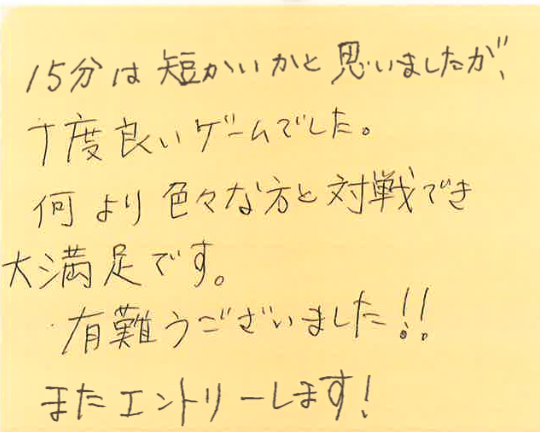 15分は短かいかと思いましたが、
丁度良いゲームでした。
何より色々な方と対戦でき
大満足です。
有難うございました!!
またエントリーします!